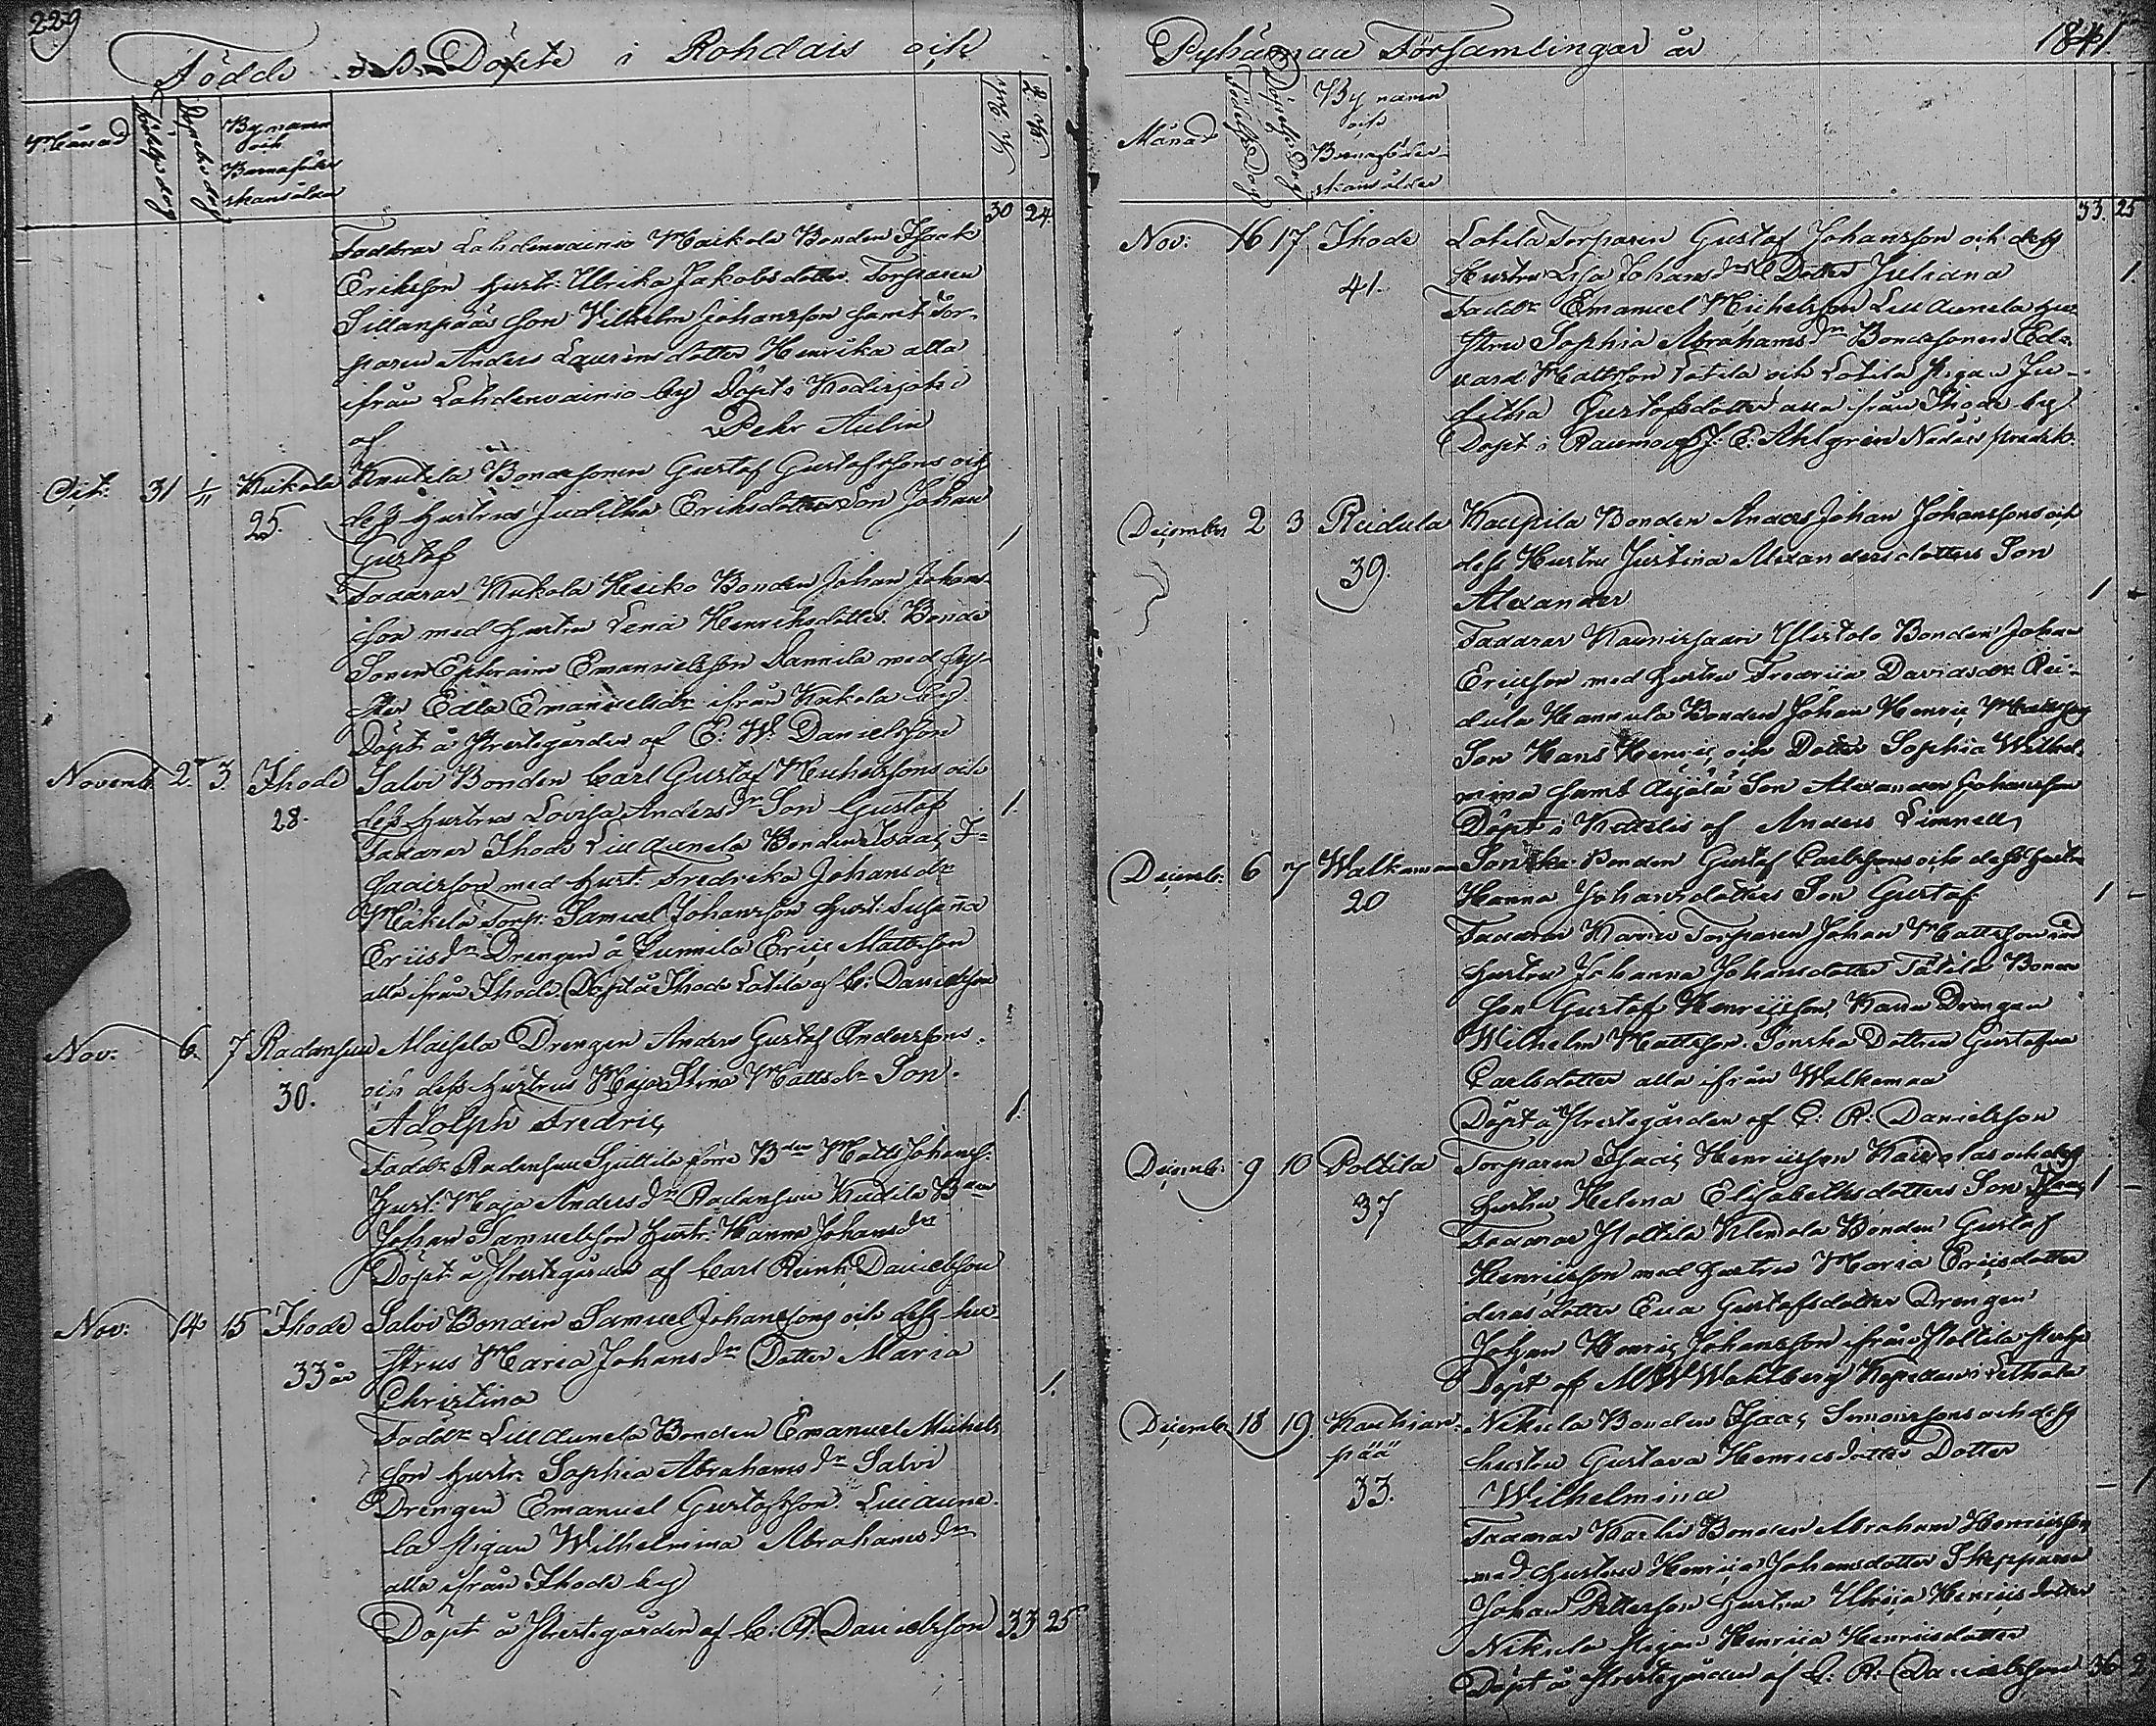 229
Födde och Döpte i Rohdais och
Månad
Födelse dag
Döpelse dag
By namn
och
Barnaföder-
skans ålder
30 24.
Faddrar Lahdenvainio Maikola Bonden Isack
Eriksson hustr: Ulrika Jakobsdotter. Torparen
Sillanpääs son Vilhelm Johansson samt Tor-
paren Anders Laurens dotter Henrika alla
ifrån Lahdenvainio by Döpts Kodisjoki
af Pehr Aulin
Oct: 31 1/11 Kukola Knutila Bondesonen Gustaf Gustafssons och
25. dess hustrus Juditha Eriksdotters Son Johan
Gustaf 1
Faddrar Kukola Heiko Bonden Johan Johans-
son med hustru Lena Henriksdotter. Bonde
Sonen Ephraim Emanuelsson Dannila med sys-
ter Edla Emanuelsdr ifrån Kukola by.
Döpt å Prestegården af C: R: Danielsson
Novemb. 2. 3. Ihode Salvi Bonden Carl Gustaf Michelssons och
28. dess hustrus Lovisa Anders dr Son Gustaf 1.
Faddrar Ihode Lill aunela Bonden Isaac I-
saacsson med hust: Fredrika Johansdr
Mäkilä Torp: Samuel Johansson hust: Susanna
Ericsdr Drengen å Gunnila Eric Mattsson
alla ifrån Ihode. Döpt å Ihode Lotila af C: Danielsson
Nov: 6. 7 Radansuu Maisela Drengen Anders Gustaf Anderssons
30. och dess hustrus Maja Stina Mattsdr Son.
Adolph Fredric 1.
Fadd: Radansuu Sjuttila förre Bden Matts Johanss:
Hust: Maja Anders dr Radansuu Kudila Bden
Johan Samuelsson hustr: Hanna Johans dr
Döpt å Prestegården af Carl Reinh. Danielsson
Nov: 14 15 Ihode Salvi Bonden Samuel Johanssons och dess hu-
33 år strus Maria Johans dr Dotter Maria
Christina 1.
Fadd: Lill aunela Bonden Emanuel Michels
son hustr: Sophia Abrahams dr Salvi
Drengen Emanuel Gustafsson Lill aune-
la Pigan Wilhelmina Abrahams dr
alla ifrån Ihode by
Döpt å Prestegården af C: R: Danielsson 33 25
Pyhämaa Församlingar år 1841
Månad
Födelse Dag
Döpelse Dag
By namn
och
Barnaföder-
skans ålder
33. 25
Nov: 16 17 Ihode Lotila Torparen Gustaf Johansson och dess
41. Hustru Lisa Johans drs Dotter Juliana 1.
Fadd: Emanuel Michelsson Lill aunela hu-
stru Sophia Abrahams dr Bondesonen Ed-
vard Mattsson Lotila och Lotila Pigan Ju-
ditha Gustafsdotter alla ifrån Ihode by
Döpt i Raumo af J: E: Ahlgren
December 2 3 Reidula Kaupila Bonden Anders Johan Johanssons och
39. dess Hustru Justina Alexandersdotters Son
Alexander 1 -
Faddrar Kaunissaari Ylistalo Bonden Johan
Ericsson med hustru Fredrica Davidsdr Rei-
dula Hannula Bonden Johan Henric Mattsson
Son Hans Henric och Dotter Sophia Wilhel-
mina samt Äijälä Son Alexander Johansson
Döpt i Kettelis af Anders Limnell,
Decemb: 6 7 Walkamaa Sonska Bonden Gustaf Carlssons och dess hustru
20 Hanna Johansdotters Son Gustaf 1 -
Faddrar Karru Torparen Johan Mattsson med
hustru Johanna Johansdotter Tätilä Bonde
son Gustaf Henricsson, Karru Drengen
Wilhelm Mattsson. Sonska Dottren Gustafva
Carlsdotter alla ifrån Walkamaa
Döpt å Prestegården af C: R: Danielsson
Decemb: 9 10 Poltila Torparen Isaac Henricsson Kairolas och dess
37 hustru Helena Elisabethsdotters Son Isaac 1 -
Faddrar Poltila Klemola Bonden Gustaf
Henricsson med hustru Maria Ericsdotter
deras dotter Eva Gustafsdotter Drengen
Johan Henric Johansson ifrån Poltila
Döpt af M W Wahlberg Kapellan i Letala
Decemb. 18 19. Kauhian- Nikula Bonden Isaac Simonssons och dess
pää hustru Gustava Henricsdotter Dotter
33. Wilhelmina - 1
Faddrar Karhu Bonden Abraham Henricsson
med hustru Henrica Johansdotter Skepparen
Johan Pettersson hustru Ulrica Henricsdotter
Nikula Pigan Henrica Henricsdotter
Döpt å Prestegården af C: R: Danielsson 36 2